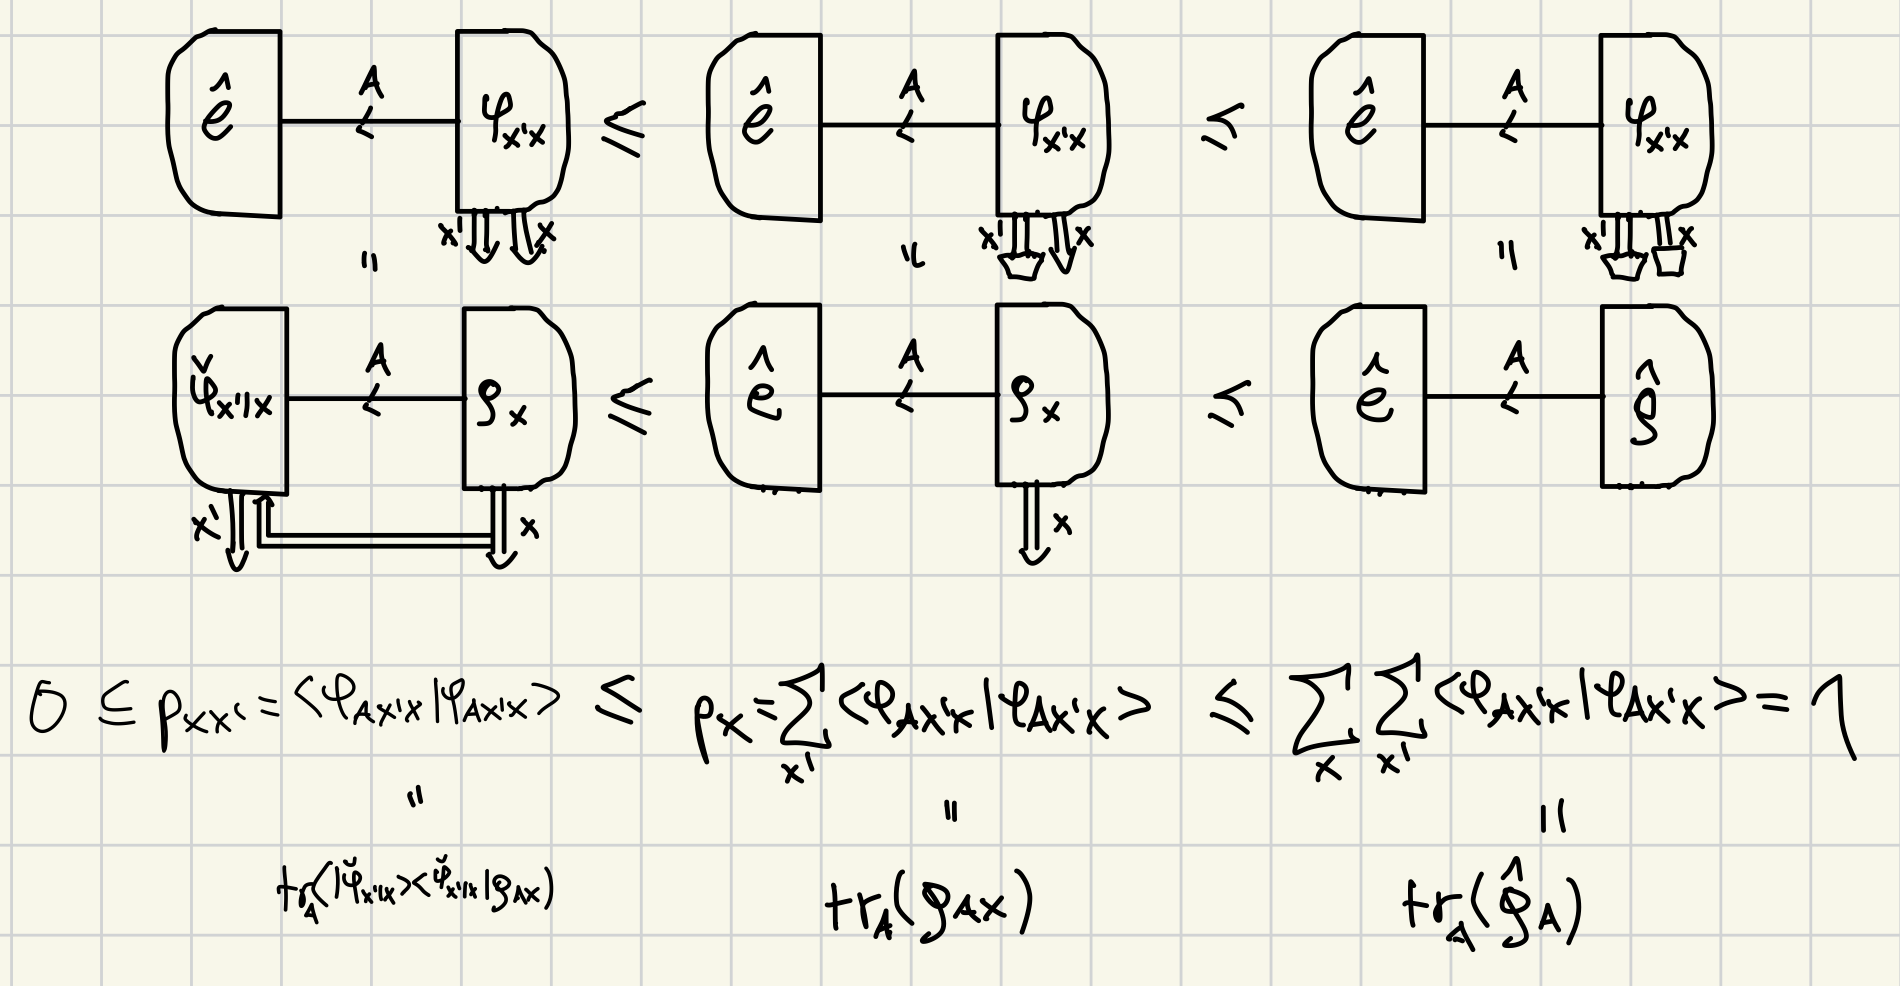 ê A φ_{x'x} ≤ ê A φ_{x'x} ≤ ê A φ_{x'x}
x' x x' x x' x
= = =
φ̌_{x'|x} A ρ_x ≤ ê A ρ_x ≤ ê A ρ̂
x' x x
0 ≤ p_{xx'} = <φ_{Ax'x}|φ_{Ax'x}> ≤ p_x = ∑_{x'} <φ_{Ax'x}|φ_{Ax'x}> ≤ ∑_x ∑_{x'} <φ_{Ax'x}|φ_{Ax'x}> = 1
= = =
tr_A(|φ̌_{x'|x}><φ̌_{x'|x}|ρ_{Ax}) tr_A(ρ_{Ax}) tr_A(ρ̂_A)